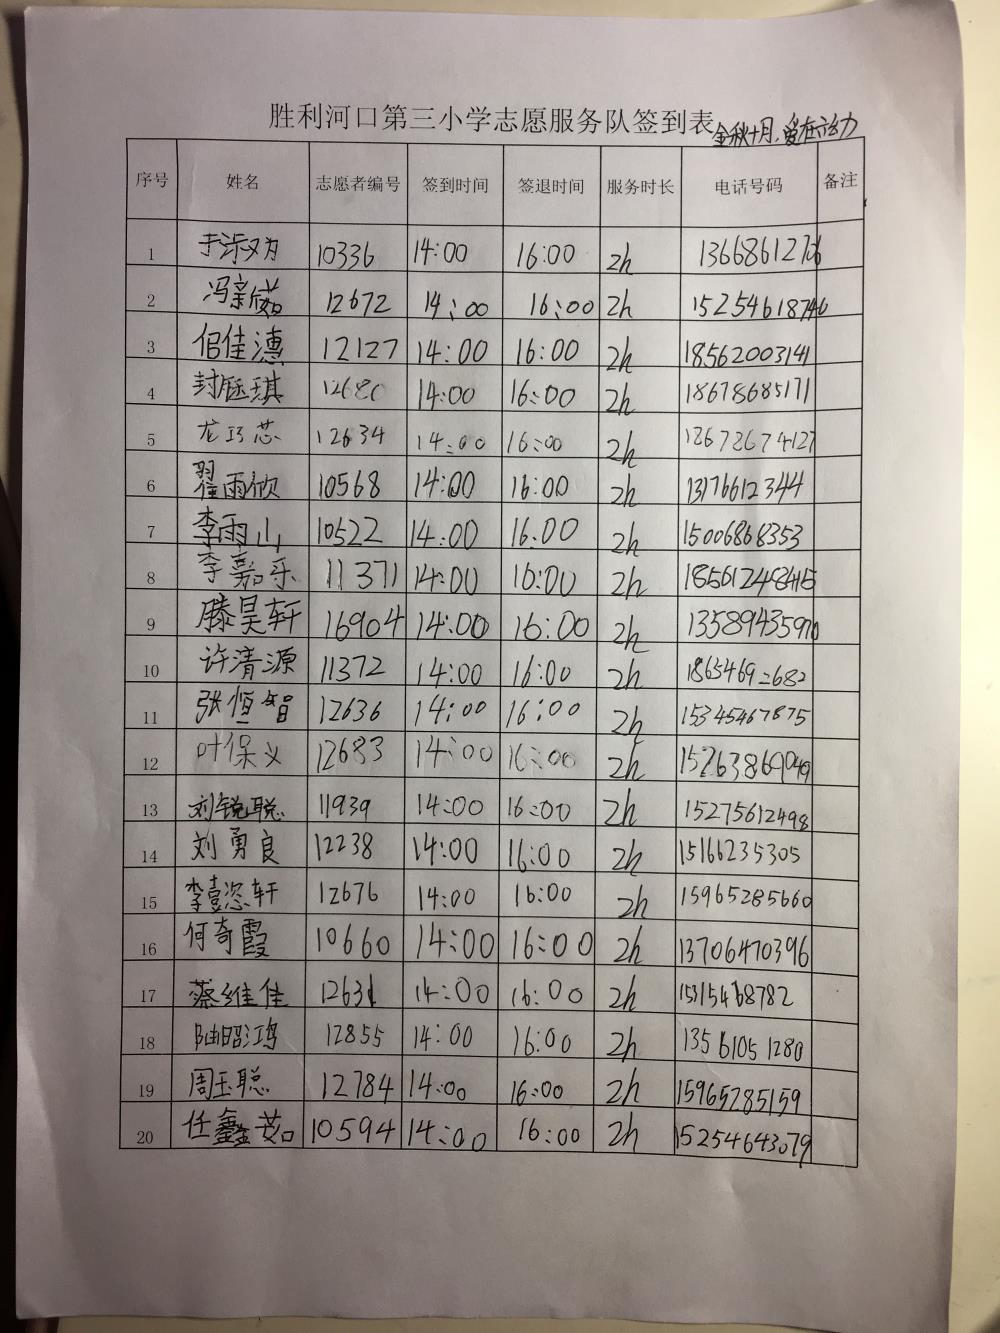 胜利河口第三小学志愿服务队签到表 金秋十月,爱在
序号 姓名 志愿者编号 签到时间 签退时间 服务时长 电话号码 备注
1 于 10336 14:00 16:00 2h
2 冯新茹 12672 14:00 16:00 2h 15254618746
3 侣佳漶 12127 14:00 16:00 2h 18562003141
4 封钰琪 12680 14:00 16:00 2h 18678685171
5 龙巧芯 12634 14:00 16:00 2h 18678674127
6 翟雨欣 10568 14:00 16:00 2h 13176612344
7 李雨山 10522 14:00 16:00 2h 15006868353
8 李嘉乐 11371 14:00 16:00 2h
9 滕昊轩 16904 14:00 16:00 2h 13589435970
10 许清源 11372 14:00 16:00 2h 18654692682
11 张恒智 12636 14:00 16:00 2h 15345467875
12 叶保义 12683 14:00 16:00 2h 15263869049
13 刘锐聪 11939 14:00 16:00 2h 15275612498
14 刘勇良 12238 14:00 16:00 2h 15166235305
15 李懿恣轩 12676 14:00 16:00 2h 15965285660
16 何奇霞 10660 14:00 16:00 2h 13706470396
17 蔡维佳 12631 14:00 16:00 2h 15315468782
18 昭鸿 12855 14:00 16:00 2h 13561051280
19 周玉聪 12784 14:00 16:00 2h 15965285159
20 任鑫茹 10594 14:00 16:00 2h 15254643079